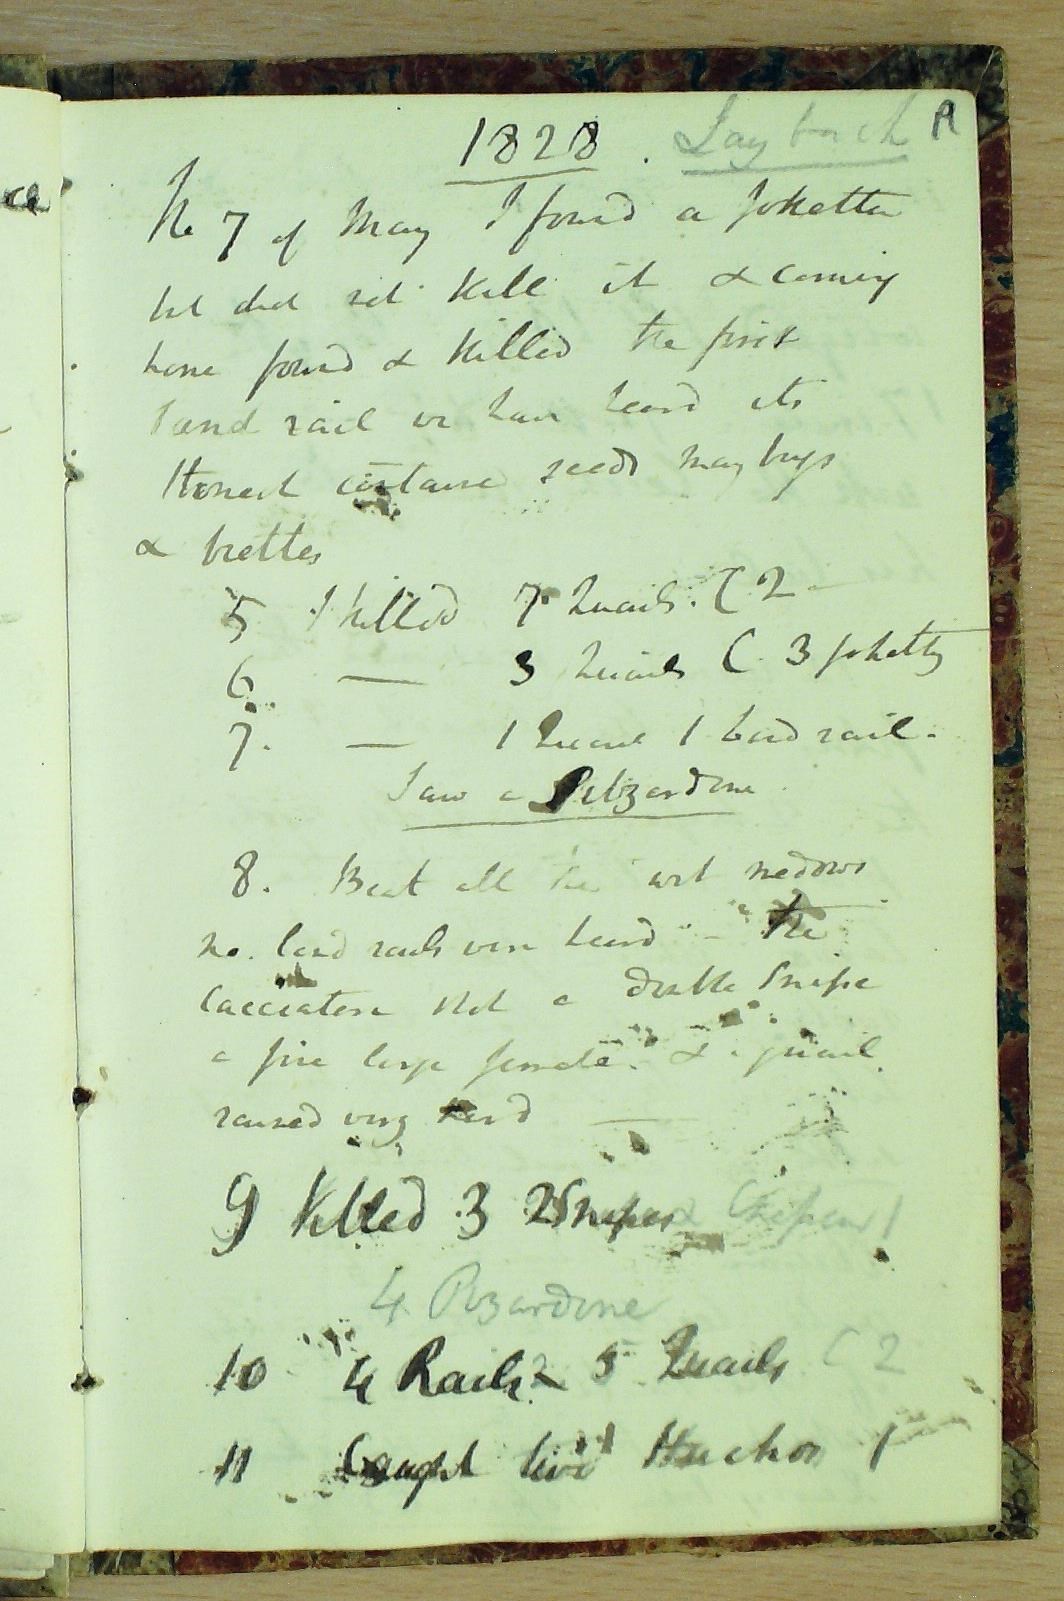 1828. Laybach A
The 7 of May I found a foketta
but did not kill it & coming
home found & killed the first
land rail we have heard its
stomach contained seeds may bugs
& beetles
5 I killed 7 Quails. C 2 -
6 — 3 Quails C. 3
7. — 1 Quail 1 Land rail.
Saw a Pizzardone
8. Beat all the wet medows
no. land rails were heard – the
Cacciatore shot a double Snipe
a fine large female. & 1 quail
raised very hard —
9 Killed 3 2 Snipes & 1
4 Pizardone
10 4 Rails 2 5 Quails C 2
11 Caught two Huchos 1